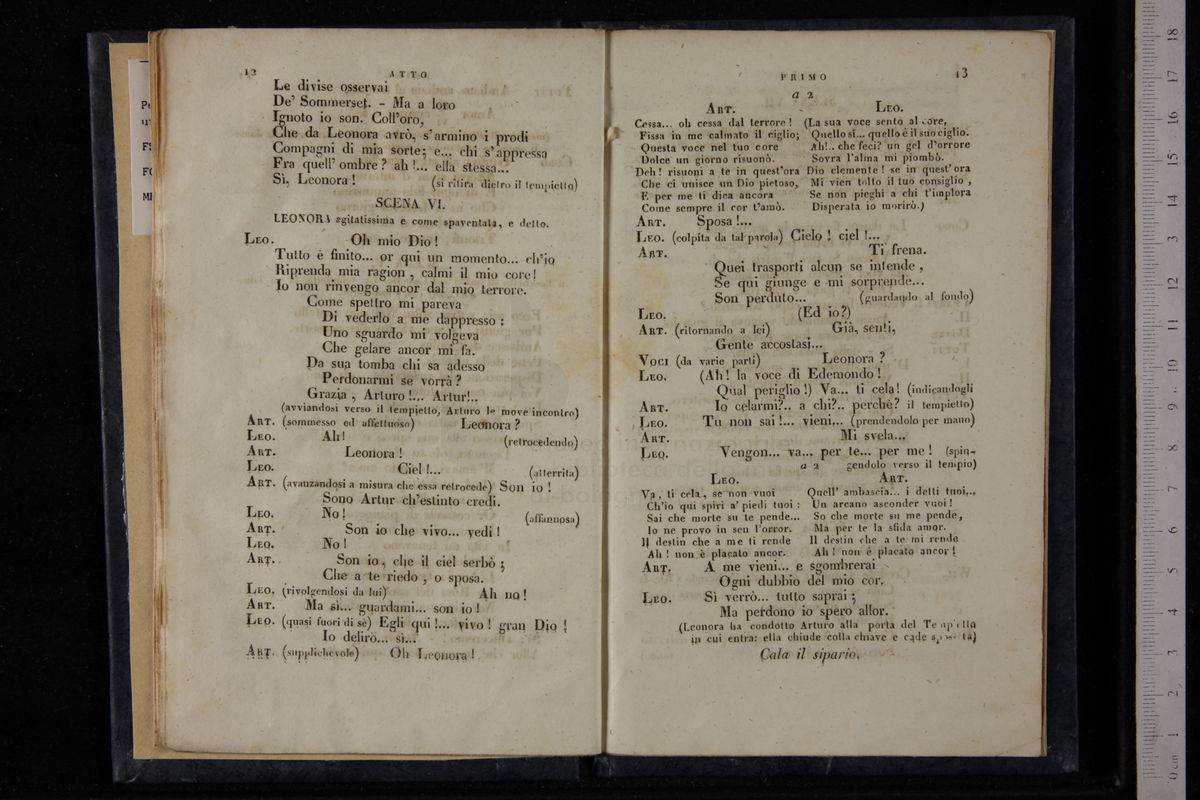 12 ATTO
Le divise osservai
De' Sommerset. - Ma a loro
Ignoto io son. Coll'oro,
Che da Leonora avrò, s'armino i prodi
Compagni di mia sorte; e... chi s'appressa
Fra quell' ombre? ah!... ella stessa...
Sì, Leonora! (si ritira dietro il tempietto)
SCENA VI.
LEONORA agitatissima e come spaventata, e detto.
LEO. Oh mio Dio!
Tutto è finito... or qui un momento... ch'io
Riprenda mia ragion, calmi il mio core!
Io non rinvengo ancor dal mio terrore.
Come spettro mi pareva
Di vederlo a me dappresso;
Uno sguardo mi volgeva
Che gelare ancor mi fa.
Da sua tomba chi sa adesso
Perdonarmi se vorrà?
Grazia, Arturo!... Artur!..
(avviandosi verso il tempietto, Arturo le move incontro)
ART. (sommesso ed affettuoso) Leonora?
LEO. Ah! (retrocedendo)
ART. Leonora!
LEO. Ciel!... (atterrita)
ART. (avanzandosi a misura che essa retrocede) Son io!
Sono Artur ch'estinto credi.
LEO. No! (affannosa)
ART. Son io che vivo... vedi!
LEO. No!
ART. Son io, che il ciel serbò;
Che a te riedo, o sposa.
LEO. (rivolgendosi da lui) Ah no!
ART. Ma sì... guardami... son io!
LEO. (quasi fuori di sè) Egli qui!... vivo! gran Dio!
Io deliro... sì...
ART. (supplichevole) Oh Leonora!
PRIMO 13
a 2
ART. LEO.
Cessa... oh cessa dal terrore! (La sua voce sento al core,
Fissa in me calmato il ciglio; Quello sì... quello è il suo ciglio.
Questa voce nel tuo core Ah!.. che feci? un gel d'orrore
Dolce un giorno risuonò. Sovra l'alma mi piombò.
Deh! risuoni a te in quest'ora Dio clemente! se in quest'ora
Che ci unisce un Dio pietoso, Mi vien tolto il tuo consiglio,
E per me ti dica ancora Se non pieghi a chi t'implora
Come sempre il cor t'amò. Disperata io morirò.)
ART. Sposa!...
LEO. (colpita da tal parola) Cielo! ciel!...
ART. Ti frena.
Quei trasporti alcun se intende,
Se qui giunge e mi sorprende...
Son perduto... (guardando al fondo)
LEO. (Ed io?)
ART. (ritornando a lei) Già, senti,
Gente accostasi...
VOCI (da varie parti) Leonora?
LEO. (Ah! la voce di Edemondo!
Qual periglio!) Va... ti cela! (indicandogli
ART. Io celarmi?.. a chi?.. perchè? il tempietto)
LEO. Tu non sai!... vieni... (prendendolo per mano)
ART. Mi svela...
LEO. Vengon... va... per te... per me! (spin-
a 2 gendolo verso il tempio)
LEO. ART.
Va, ti cela, se non vuoi Quell' ambascia... i detti tuoi...
Ch'io qui spiri a' piedi tuoi: Un arcano asconder vuoi!
Sai che morte su te pende... So che morte su me pende,
Io ne provo in sen l'orror. Ma per te la sfida amor.
Il destin che a me ti rende Il destin che a te mi rende
Ah! non è placato ancor. Ah! non è placato ancor!
ART. A me vieni... e sgombrerai
Ogni dubbio del mio cor.
LEO. Sì verrò... tutto saprai;
Ma perdono io spero allor.
(Leonora ha condotto Arturo alla porta del Tempietto
in cui entra: ella chiude colla chiave e cade
Cala il sipario.